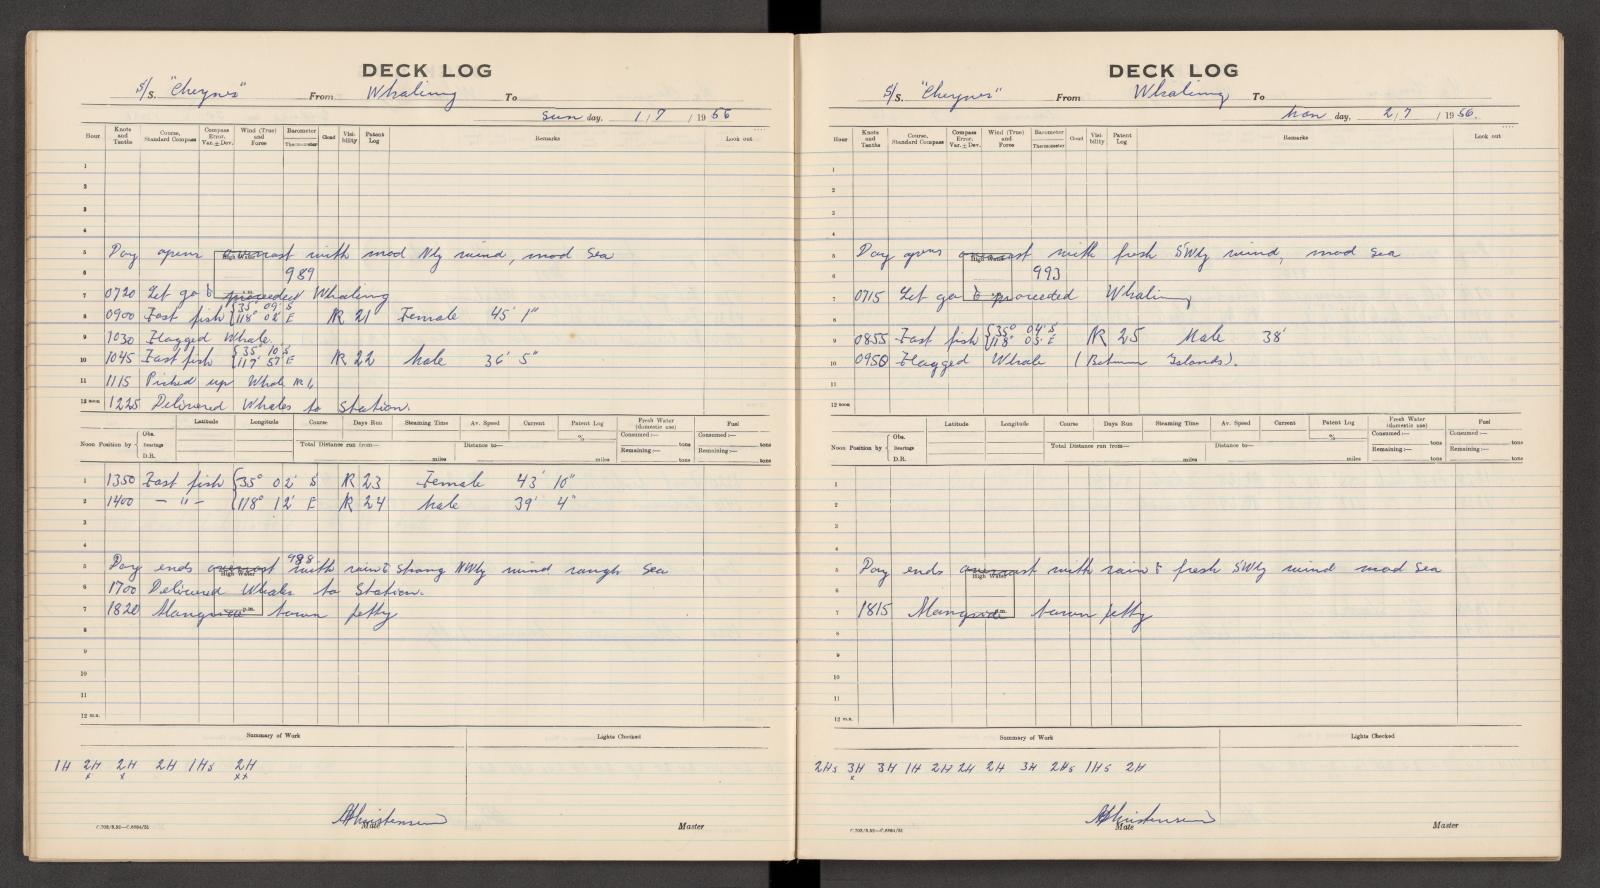 DECK LOG
S/S. "Cheynes" From Whaling To
Sun day, 1/7 / 19 56
Hour Knots and Tenths Course, Standard Compass Compass Error. Var. ± Dev. Wind (True) and Force Barometer Thermometer Cloud Visibility Patent Log Remarks Look out
1
2
3
4
5 Day opens overcast with mod Nly wind, mod sea
High Water
6 989
7 0720 Let go & proceeded Whaling
8 0900 Fast fish { 35° 09' S 118° 02' E NR 21 Female 45' 1"
9 1030 Flagged Whale.
10 1045 Fast fish { 35° 10' S 117° 57' E NR 22 Male 36' 5"
11 1115 Picked up Whale
12 noon 1225 Delivered Whales to Station.
Noon Position by Obs. bearings D.R. Latitude Longitude Course Days Run Steaming Time Av. Speed Current Patent Log Fresh Water (domestic use) Fuel
Total Distance run from— miles Distance to— miles % Consumed:— tons Remaining:— tons Consumed:— tons Remaining:— tons
1 1350 Fast fish { 35° 02' S NR 23 Female 43' 10"
2 1400 — " — { 118° 12' E NR 24 Male 39' 4"
3
4
988
5 Day ends overcast with rain & strong NWly wind rough sea
High Water
6 1700 Delivered Whales to Station.
7 1820 Alongside town jetty
p.m.
8
9
10
11
12 m.n.
Summary of Work Lights Checked
1H 2H 2H 2H 1Hs 2H
x x xx
AChristensen
C.702/8.52—C.6864/51 Mate Master
DECK LOG
S/S. "Cheynes" From Whaling To
Mon day, 2/7 / 19 56.
Hour Knots and Tenths Course, Standard Compass Compass Error. Var. ± Dev. Wind (True) and Force Barometer Thermometer Cloud Visibility Patent Log Remarks Look out
1
2
3
4
5 Day opens overcast with fresh SWly wind, mod sea
High Water
6 993
7 0715 Let go & proceeded Whaling
8
9 0855 Fast fish { 35° 04' S 118° 05' E NR 25 Male 38'
10 0950 Flagged Whale (Between Islands).
11
12 noon
Noon Position by Obs. bearings D.R. Latitude Longitude Course Days Run Steaming Time Av. Speed Current Patent Log Fresh Water (domestic use) Fuel
Total Distance run from— miles Distance to— miles % Consumed:— tons Remaining:— tons Consumed:— tons Remaining:— tons
1
2
3
4
5 Day ends overcast with rain & fresh SWly wind mod sea
High Water
6
7 1815 Alongside town jetty
p.m.
8
9
10
11
12 m.n.
Summary of Work Lights Checked
2Hs 3H 3H 1H 2H 2H 2H 3H 2Hs 1Hs 2H
x
AChristensen
C.702/8.52—C.6864/51 Mate Master